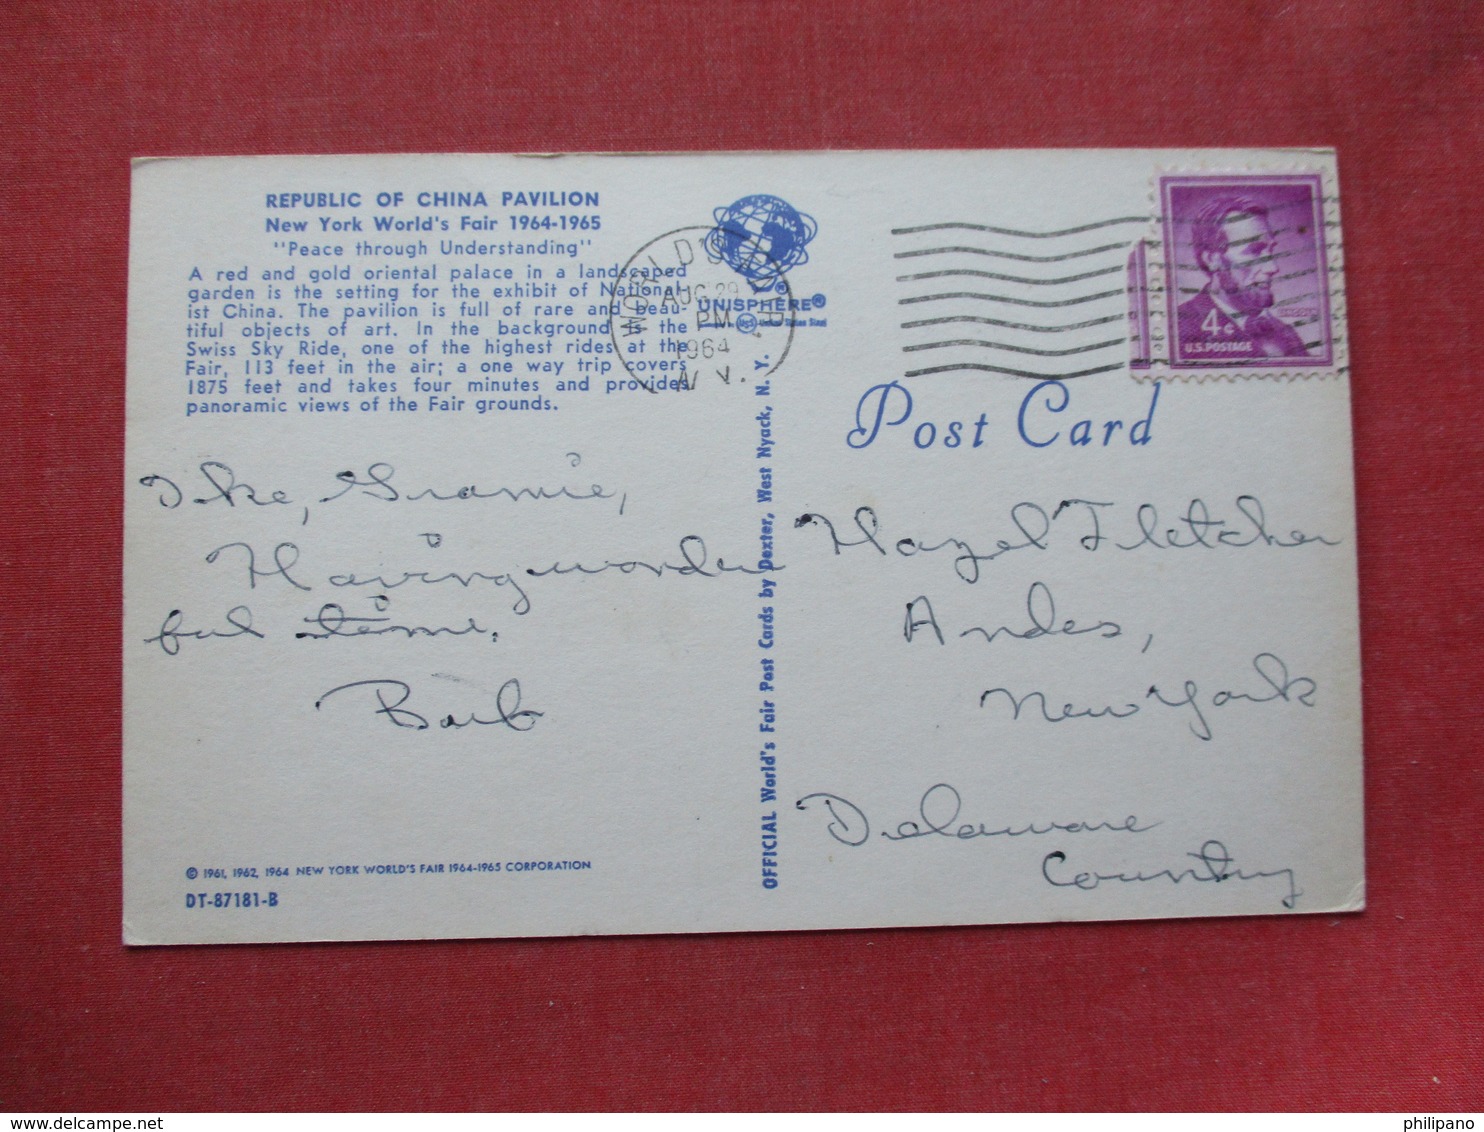 REPUBLIC OF CHINA PAVILION
New York World's Fair 1964-1965
"Peace through Understanding"
A red and gold oriental palace in a landscaped
garden is the setting for the exhibit of National-
ist China. The pavilion is full of rare and beau-
tiful objects of art. In the background is the
Swiss Sky Ride, one of the highest rides at the
Fair, 113 feet in the air; a one way trip covers
1875 feet and takes four minutes and provides
panoramic views of the Fair grounds.
Ike, Gramie,
Having wonder
ful time.
Barb
© 1961, 1962, 1964 NEW YORK WORLD'S FAIR 1964-1965 CORPORATION
DT-87181-B
UNISPHERE®
WORLD'S FAIR
AUG 29
PM
1964
N.Y.
OFFICIAL World's Fair Post Cards by Dexter, West Nyack, N. Y.
4¢
LINCOLN
U.S. POSTAGE
Post Card
Hazel Fletcher
Andes,
New York
Delaware
Country
philipano